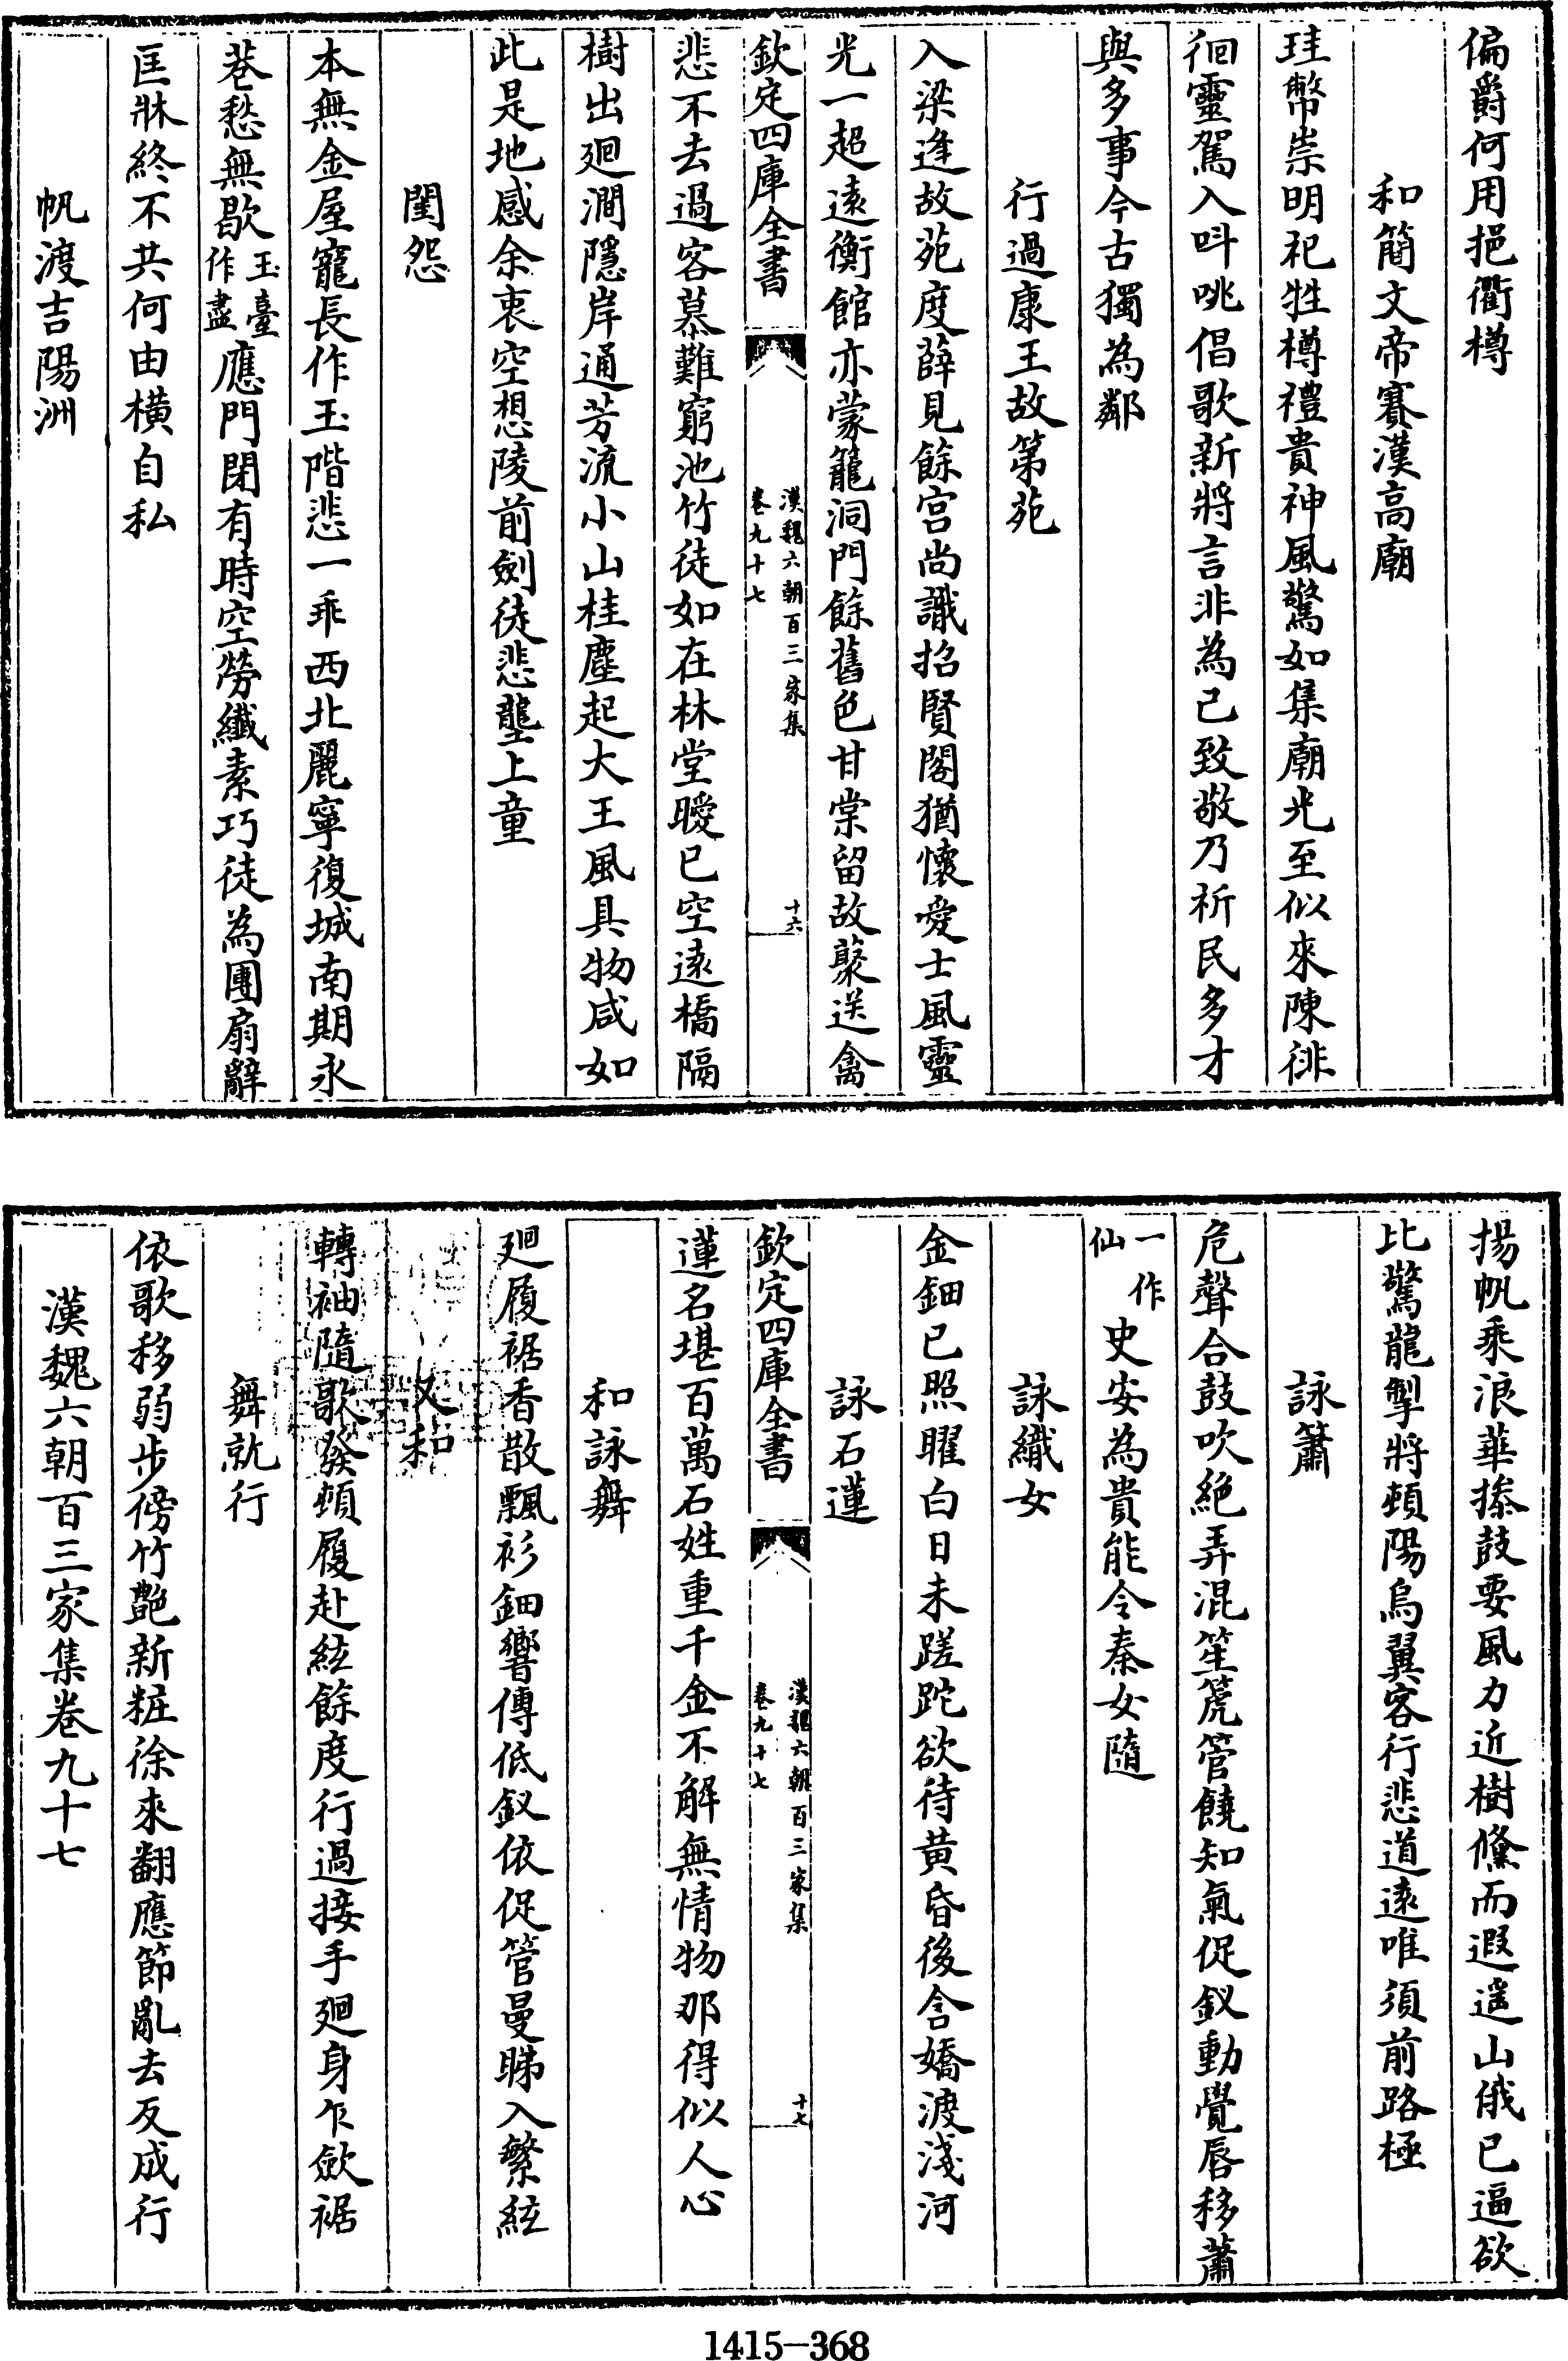 偏爵何用挹衢樽
和簡文帝賽漢高廟
珪幣崇明祀牲樽禮貴神風驚如集廟光至似來陳徘
徊靈駕入叫咷倡歌新將言非為己致敬乃祈民多才
與多事今古獨為鄰
行過康王故第苑
入梁逢故苑度薛見餘宮尚識招賢閣猶懷愛士風靈
光一超遠衡館亦蒙籠洞門餘舊色甘棠留故藂送禽
欽定四庫全書
漢魏六朝百三家集
卷九十七
十六
悲不去過客慕難窮池竹徒如在林堂曖已空遠橋隔
樹出廻澗隱岸通芳流小山桂塵起大王風具物咸如
此是地感余衷空想陵前劍徒悲壟上童
閨怨
本無金屋寵長作玉階悲一乖西北麗寧復城南期永
巷愁無歇玉臺作盡應門閉有時空勞纖素巧徒為團扇辭
匡牀終不共何由橫自私
帆渡吉陽洲
揚帆乘浪華搸鼓要風力近樹儵而遐遥山俄已逼欲
比驚龍掣將頓陽烏翼客行悲道遠唯須前路極
詠簫
危聲合鼓吹絶弄混笙篪管饒知氣促釵動覺唇移蕭
一作仙史安為貴能令秦女隨
詠織女
金鈿已照曜白日未蹉跎欲待黄昏後含嬌渡淺河
詠石蓮
欽定四庫全書
漢魏六朝百三家集
卷九十七
十七
蓮名堪百萬石姓重千金不解無情物那得似人心
和詠舞
廻履裾香散飄衫鈿響傳低釵依促管曼睇入繁絃
又和
轉袖隨歌發頓履赴絃餘度行過接手廻身乍歛裾
舞就行
依歌移弱步傍竹艶新粧徐來翻應節亂去反成行
漢魏六朝百三家集卷九十七
1415-368